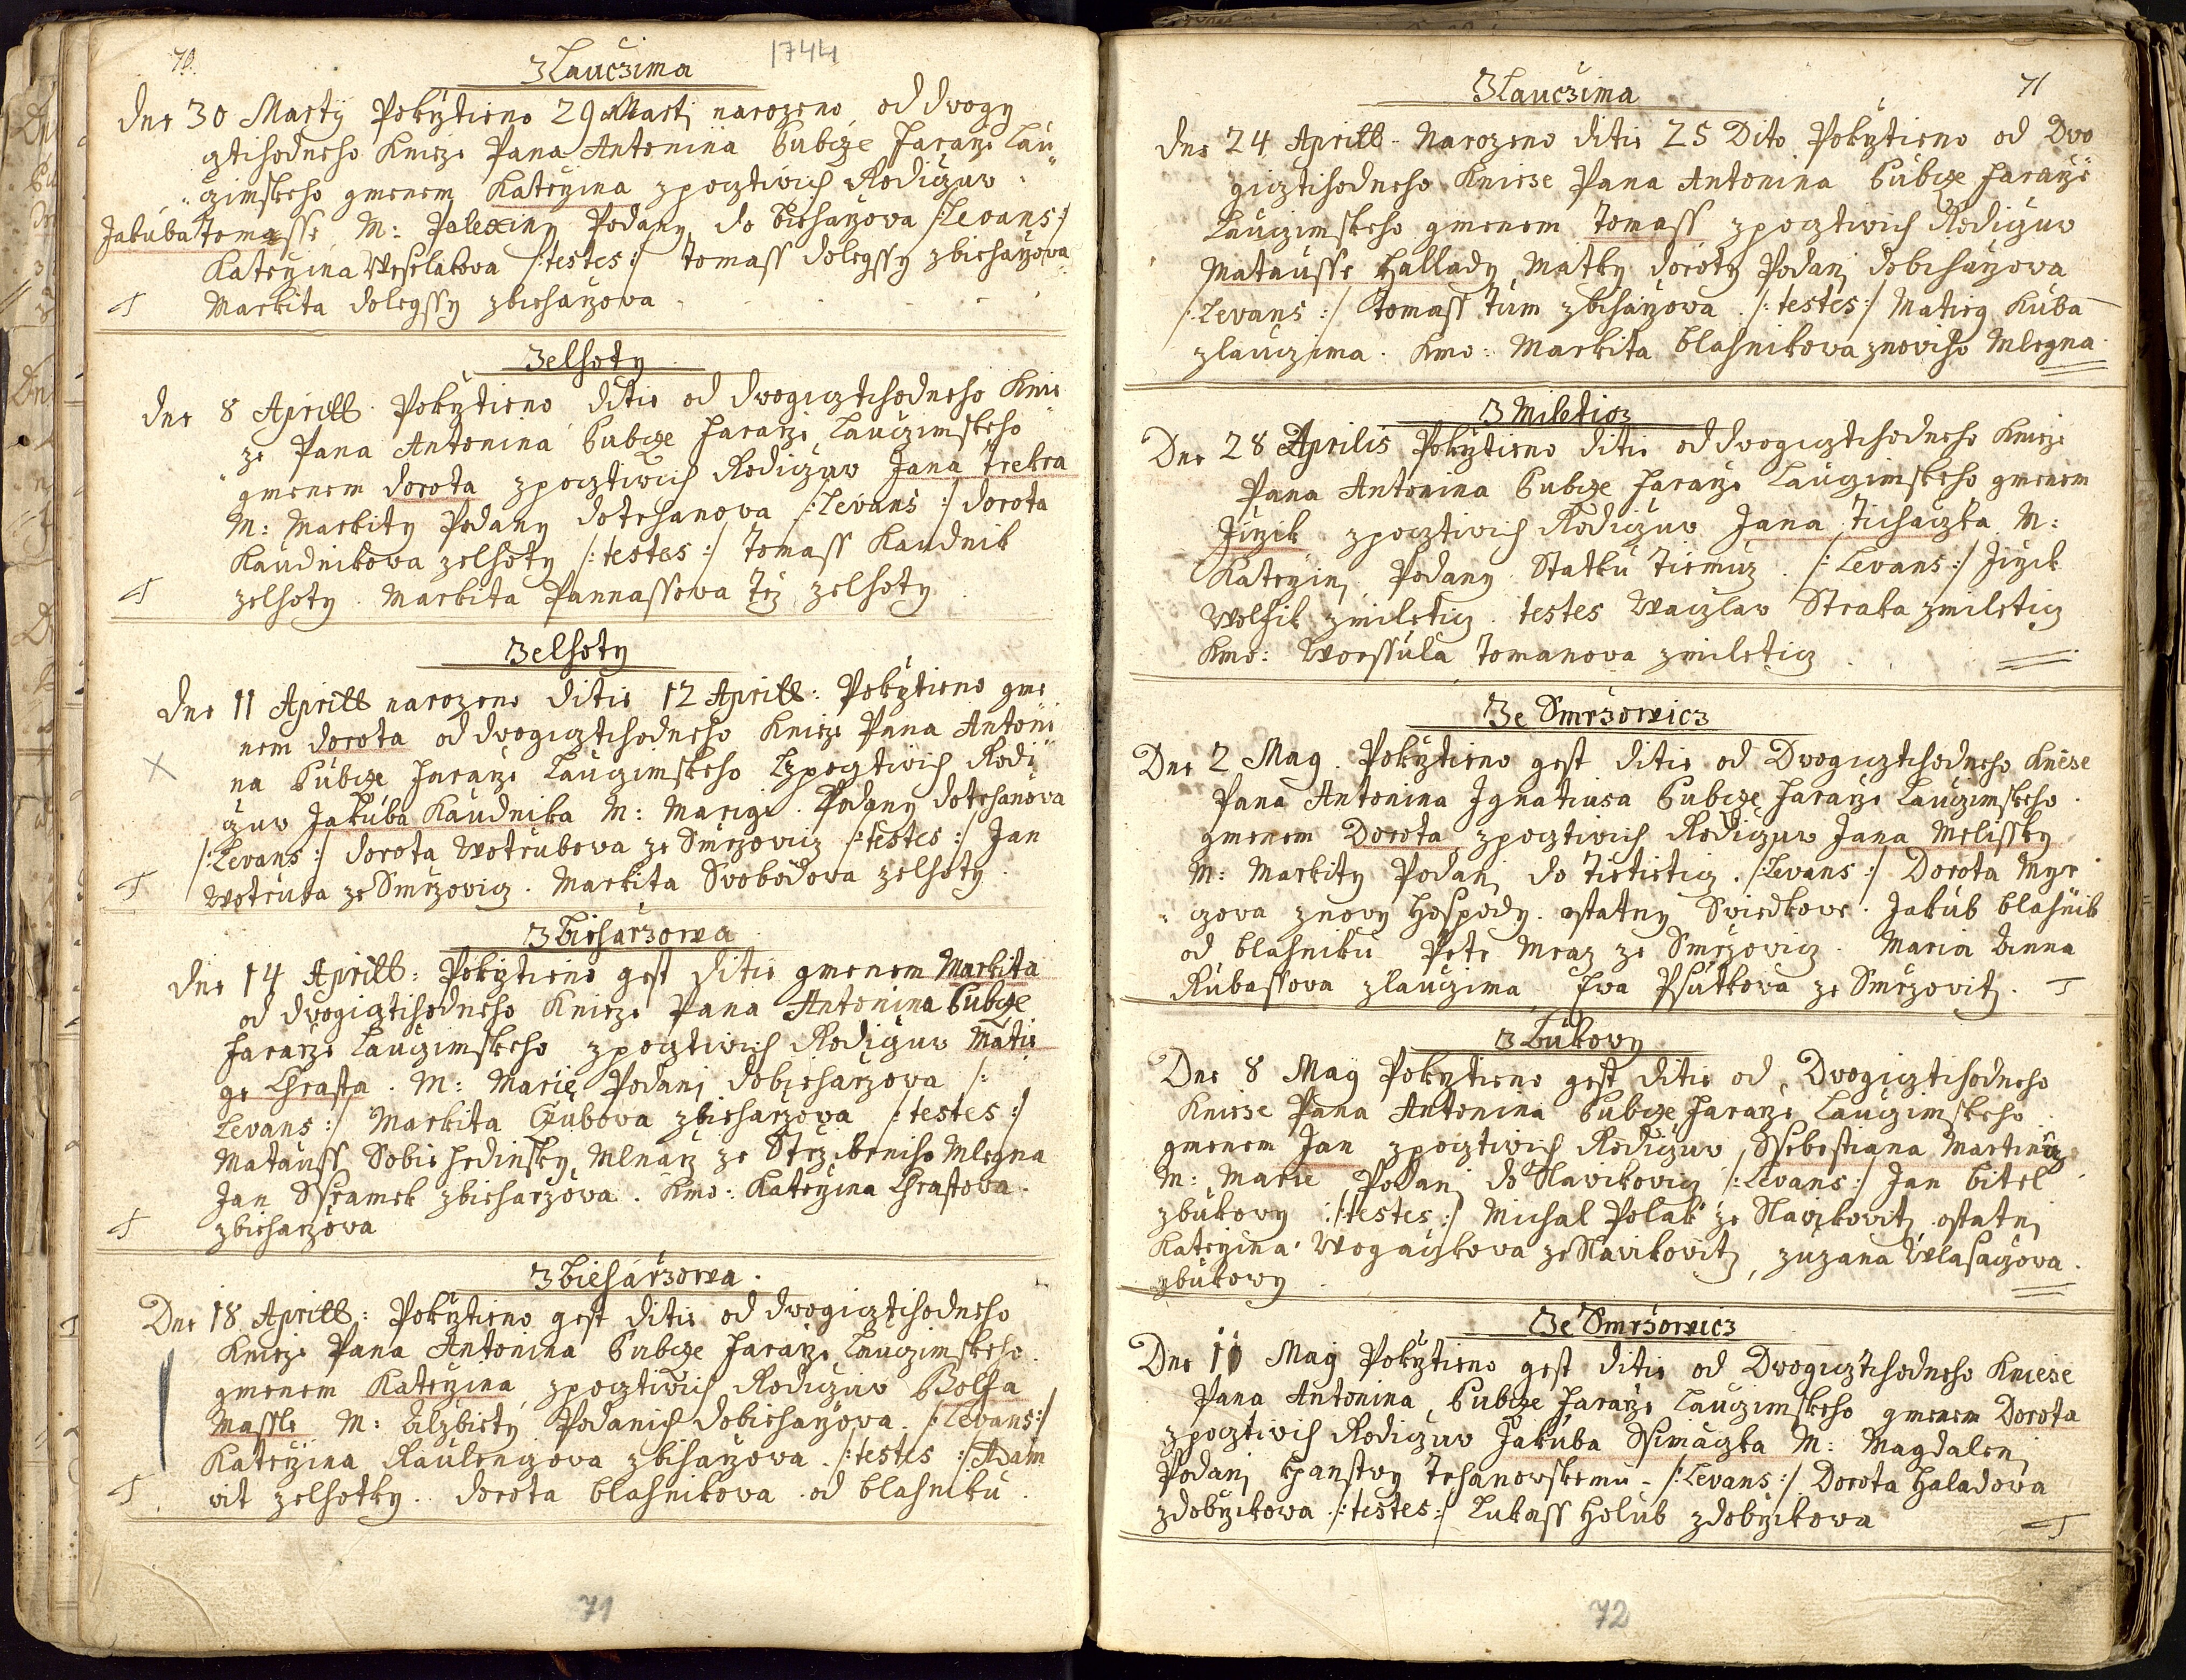 70.
1744
Z Lauczima
dne 30 Marty Pokrztieno 29 Marti narozeno od dwogy
gtihodneho Knieze Pana Antonina Fararze Lau
czimskeho gmenem Katerzina zpocztiwich Rodiczuw
Jakuba Tomasse M: Polexiny Podany do Biecharzowa /:Levans:/
Katerzina Weselakova /:testes:/ Tomass dolegssy zbiecharzowa
Markita dolegssy zbiecharzowa
Z elhoty
dne 8 Aprill Pokrztieno ditie od dwogicztihodneho Knie
ze Pana Antonina Fararze Lauczimskeho
gmenem dorota zpocztiwich Rodiczuw Jana Trekra
M: Markity Podany dotrhanowa /:Levans:/ dorota
Kaudnikowa zelhoty /:testes:/ Tomass Kaudnik
zelhoty. Markita Pannassowa Tez zelhoty
Z elhoty
dne 11 Aprill narozeno ditie 12 Aprill: Pokrztieno gme
nem dorota od dwogicztihodneho Knieze Pana Antoni
na Fararze Lauczimskeho zpocztiwich Rodi
czuw Jakuba Kaudnika M: Marige. Podany dotrhanowa
/:Levans:/ dorota Wotrubowa ze Smrzowicz /:testes:/ Jan
Wotruba ze Smrzowicz. Markita Swobodowa zelhoty.
Z Biecharzowa
dne 14 Aprill: Pokrztieno gest ditie gmenem Markita
od dwogicztihodneho Knieze Pana Antonina
Fararze Lauczimskeho zpocztiwich Rodiczuw Matie
ge Chrasta. M: Marie Podani dobiecharzowa /:
Levans:/ Markita Cubova zbiecharzowa /:testes:/
Matauss Sobiehrdinsky Mlnarz ze Strziberniho Mlegna
Jan Sramek zbiecharzowa. Kmo: Katerzina Chrastowa
zbiecharzowa
Z Biecharzowa.
Dne 18 Aprill: Pokrztieno gest ditie od dwogicztihodneho
Knieze Pana Antonina Fararze Lauczimskeho
gmenem Katerzina zpocztiwich Rodiczuw Wolfa
Massle M: Alzbiety Podanich dobiecharzowa. /:Levans:/
Katerzina Raulengowa zbiharzowa. /:testes:/ Adam
wit zelhotky. dorota blahnikowa od blahniku.
71
71
Z Lauczima
dne 24 Aprill Narozeno ditie 25 Dito Pokrztieno od Dwo
gicztihodneho Knieze Pana Antonina Fararze
Lauczimskeho gmenem Tomass zpocztiwich Rodiczuw
Matausse Hallady Matky doroty Podani dobiharzowa
/:Levans:/ Tomass Tum zbiharzowa. /:testes:/ Matieg Kuba
zlauczima. Kmo: Markita blahnikowa znoviho Mlegna.
Z Miletiez
Dne 28 Aprilis Pokrztieno ditie od dwogicztihodneho Knieze
Pana Antonina Fararze Lauczimskeho gmenem
Jirzik zpocztiwich Rodiczuw Jana Tichaczka M:
Katerzini Podany Statku Tiemicz. /:Levans:/ Jirzik
Wolfik zmiletiz. testes Waczlaw Straka zmiletiz
Kmo: Worssula Tomanova zmiletiz
Ze Smrzowicz
Dne 2 May. Pokrztieno gest ditie od Dwogicztihodneho Knieze
Pana Antonina Ignatiusa Fararze Lauczimskeho.
gmenem Dorota zpocztiwich Rodiczuw Jana Melissky
M: Markity Podani do Tietietiz. /:Levans:/ Dorota Myr
czowa znovy Hospody. ostatny Swiedkowe. Jakub blahnik
od blahniku Petr Mraz ze Smrzowicz. Maria Anna
Rubassova zlauczima, Ewa Psutkowa ze Smrzovitz.
Z Bukowy
Dne 8 May Pokrztieno gest ditie od Dwogicztihodneho
Knieze Pana Antonina Fararze Lauczimskeho
gmenem Jan zpocztiwich Rodiczuw, Ssebestiana Martincze
M: Marie Podani do Slavikowicz /:Levans:/ Jan bitel
zbukowy /:testes:/ Michal Polak ze Slavikovitz ostatni
Katerzina Wogaczkowa ze Slavikovitz, zuzana Wlasaczowa.
zbukowy
Ze Smrzowicz
Dne 11 May Pokrztieno gest ditie od Dwogicztihodneho Knieze
Pana Antonina, Fararze Lauczimskeho gmenem Dorota
zpocztiwich Rodiczuw Jakuba Ssimaczka M: Magdaleni
Podani Kpanstwy Trhanowskemu. /:Levans:/ Dorota Haladowa
zdobrzikowa /:testes:/ Lukass Holub zdobrzikowa
72